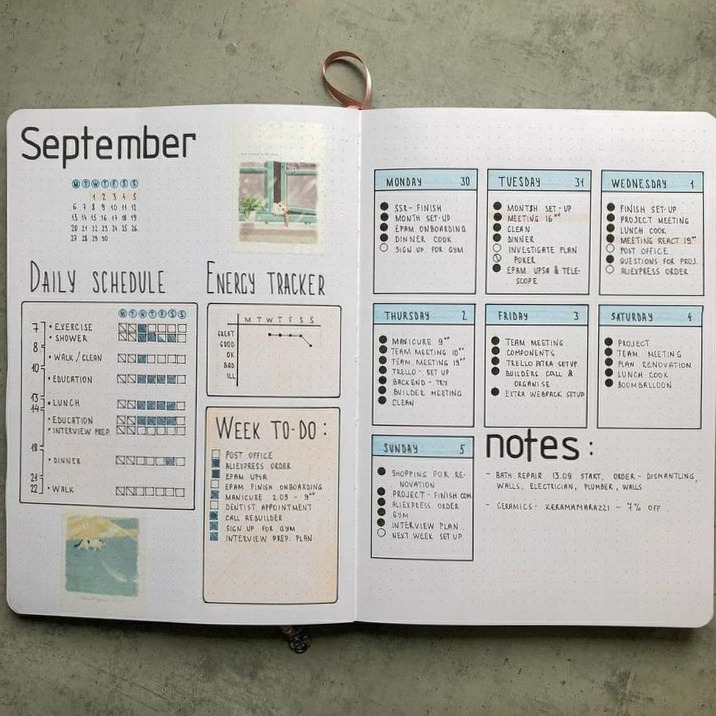 September
M T W T F S S
1 2 3 4 5
6 7 8 9 10 11 12
13 14 15 16 17 18 19
20 21 22 23 24 25 26
27 28 29 30
DAILY SCHEDULE
M T W T F S S
7 • EXERCISE
• SHOWER
8
• WALK / CLEAN
10
• EDUCATION
13 • LUNCH
14
• EDUCATION
• INTERVIEW PREP.
18
• DINNER
21
22 • WALK
ENERGY TRACKER
M T W T F S S
GREAT
GOOD
OK
BAD
ILL
WEEK TO-DO:
POST OFFICE
ALIEXPRESS ORDER
EPAM UPSA
EPAM FINISH ONBOARDING
MANICURE 2.09 - 9⁰⁰
DENTIST APPOINTMENT
CALL REBUILDER
SIGN UP FOR GYM
INTERVIEW PREP. PLAN
MONDAY 30
SSR- FINISH
MONTH SET-UP
EPAM ONBOARDING
DINNER COOK
SIGN UP FOR GYM
TUESDAY 31
MONTH SET-UP
MEETING 16⁰⁰
CLEAN
DINNER
INVESTIGATE PLAN
POKER
EPAM UPSA & TELE-
SCOPE
WEDNESDAY 1
FINISH SET-UP
PROJECT MEETING
LUNCH COOK
MEETING REACT 19⁰⁰
POST OFFICE
QUESTIONS FOR PROJ.
ALIEXPRESS ORDER
THURSDAY 2
MANICURE 9⁰⁰
TEAM MEETING 10⁰⁰
TEAM MEETING 19⁰⁰
TRELLO - SET UP
BACKEND - TRY
BUILDER MEETING
CLEAN
FRIDAY 3
TEAM MEETING
COMPONENTS
TRELLO EXTRA SETUP
BUILDERS CALL &
ORGANISE
EXTRA WEBPACK SETUP
SATURDAY 4
PROJECT
TEAM MEETING
PLAN RENOVATION
LUNCH COOK
BOOMBALLOON
SUNDAY 5
SHOPPING FOR RE-
NOVATION
PROJECT - FINISH COM
ALIEXPRESS ORDER
GYM
INTERVIEW PLAN
NEXT WEEK SET UP
notes:
- BATH REPAIR 13.09 START, ORDER - DISMANTLING,
WALLS, ELECTRICIAN, PLUMBER, WALLS
- CERAMICS - KERAMAMARAZZI - 7% OFF